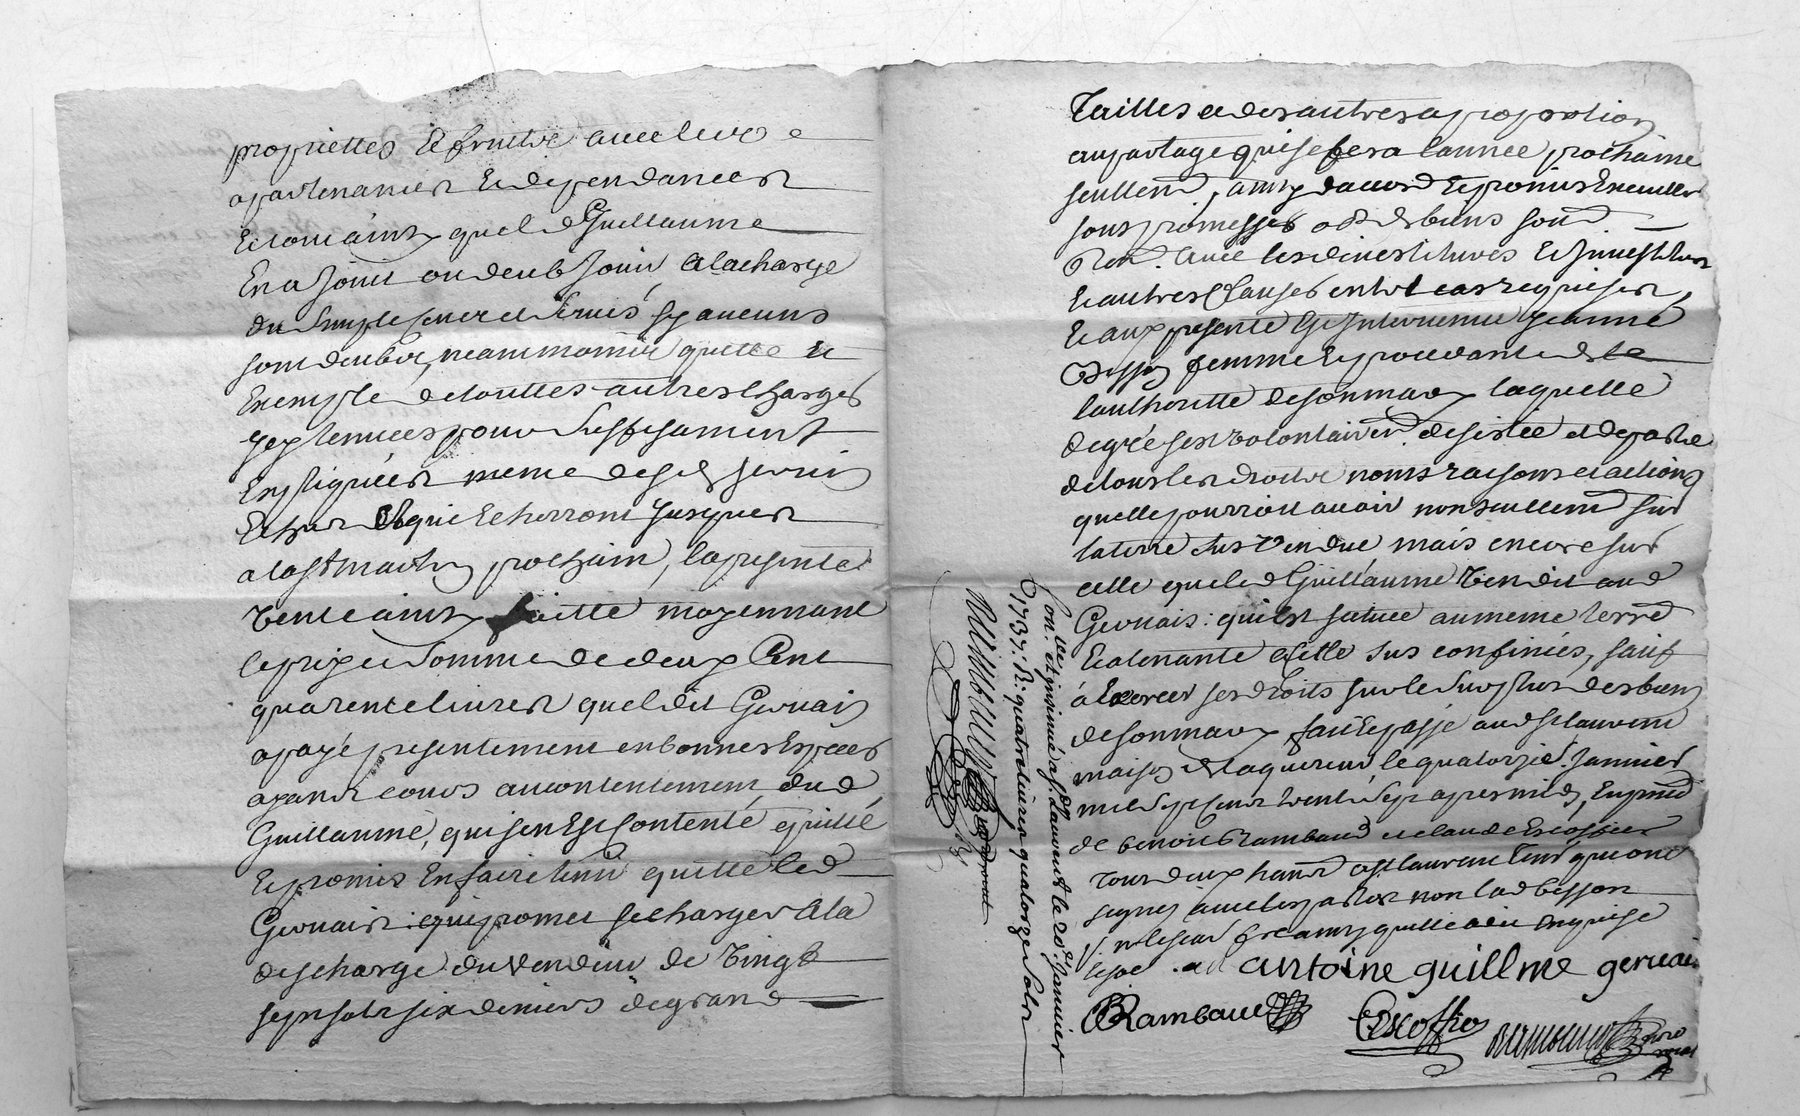 propriettes et fruitve avec leurs
apartenances et dependances
et tout ainsy que led Guillaume
En a Jouit ou deub Jouir, a la charge
du Simple cence et servis, sy aucuns
sont deubs, neammoins quitte et
Exempte de touttes autres charges
jcy tenuees pour suffisament
Expliquées meme desd servis
Et qui Echerront jusques
a la st martin prochain, la presente
vente ainsy faitte moyennant
le prix et somme de deux Cent
quarente livres que ledit Gervais
a payé presentement en bonnes Especes
ayant cours au contentement dud
Guillaume, qui s'en Est Contenté quitté
Et promis En faire tenir quitte led
Gervais: qui promet se charger a la
descharge du vendeur de vingt
sept sols six deniers de grand
Tailles et des autres a proportion
au partage qui se fera l'année prochaine
seullemt, ainsy d'accord et promis Executter
sous promesses obt de biens soumd
Ren. avec les devestitures et jnvestitures
et autres Clauses en tel cas requises,
et aux presente Est Intervenue jeanne
Besson femme et procedante de
l'authoritte de son mary laquelle
de gré s'est volontairemt. desistee et departie
de tous les droits noms raisons et actions
quelle pourroit avoir non seullemt sur
la terre sus vendue mais encore sur
celle que led Guillaume vendit aud
Gervais: qui est scituee au meme terrd
Et atenante a celle sus confinés, sauf
à Exercer ses droits sur le surplus des biens
de son mary fait et passé aud st laurent
maison de l'aquereur, le quatorzie. Janvier
mil sept cent trente sept apres midy, En prnce
de benoit Rambaud et claude Escoffier
tous deux habnt a st laurent qui ont
signes avec les parties non lad besson
p. ne scavoir ainsy quelle a dit enquise
antoine guillme gervais
BRambaud
CEscoffier
Con. lée et jnsinué a st. Laurent le 20e. Janvier
1737. R: quatre livres quatorze sols